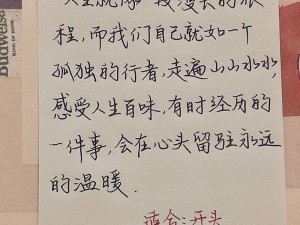 人生就像一段漫长的旅
程，而我们自己就如一个
孤独的行者，走遍山山水水，
感受人生百味，有时经历的
一件事，会在心头留驻永远
的温暖．
适合：开头
Budweiser